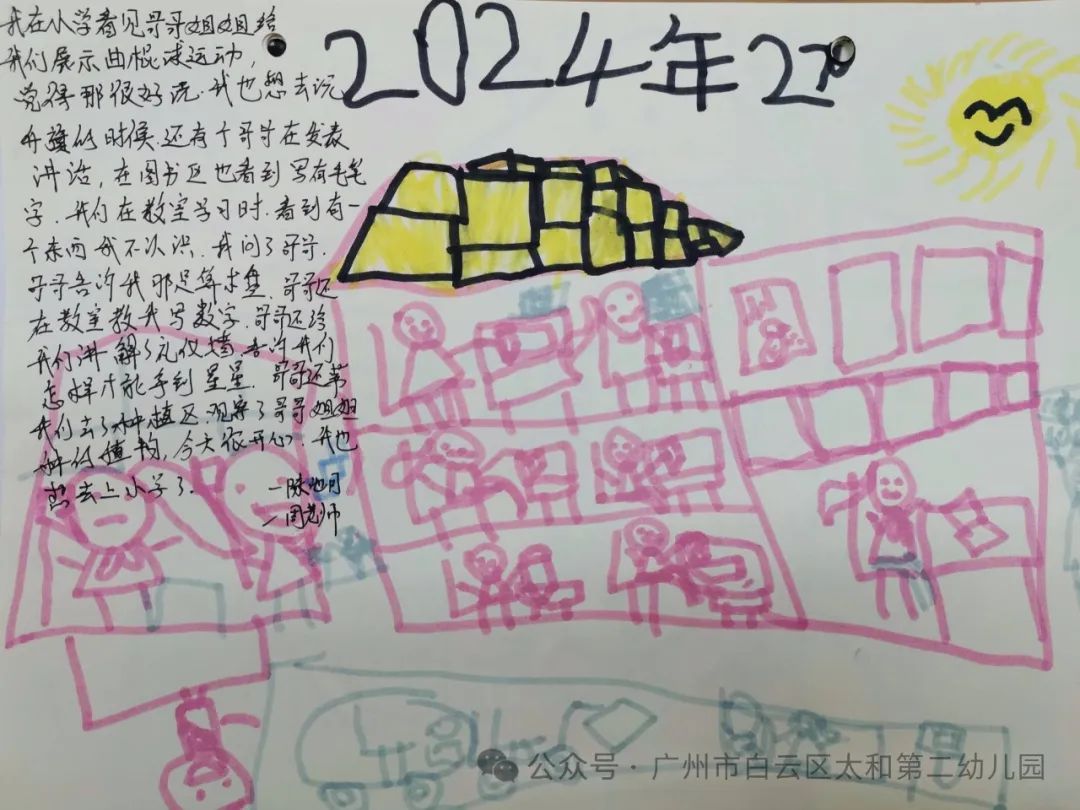 我在小学看见哥哥姐姐给
我们展示曲棍球运动,
觉得那很好玩.我也想去玩
升旗的时候.还有个哥哥在发表
讲话,在图书区也看到写有毛笔
字.我们在教室学习时.看到有一
个东西我不认识.我问了哥哥.
哥哥告诉我那是算术盘.哥哥还
在教室教我写数字.哥哥还给
我们讲解了礼仪墙.告诉我们
怎样才能拿到星星.哥哥还带
我们去了种植区.观察了哥哥姐姐
种的植物,今天很开心.我也
想去上小学了.
一陈
一周老师
2024年27
公众号·广州市白云区太和第二幼儿园